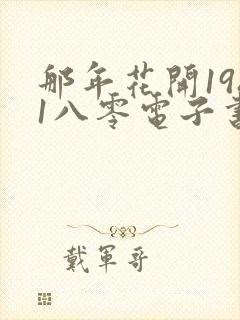 那年花開19
1八零電子書
戴軍哥